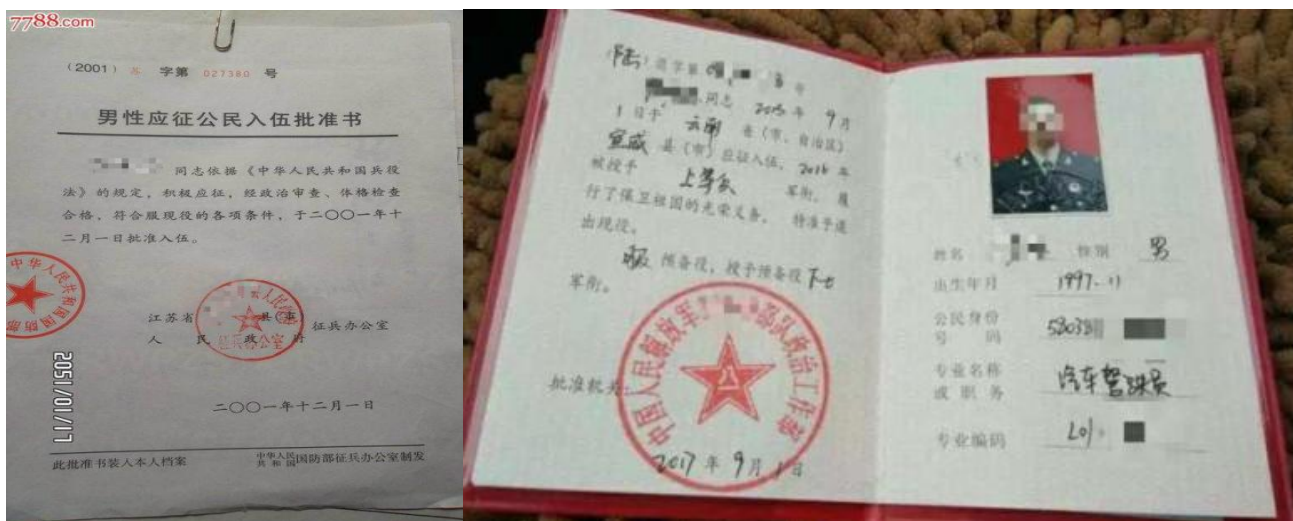 7788.com
(2001) 苏 字第 027380 号
男性应征公民入伍批准书
同志依据《中华人民共和国兵役
法》的规定，积极应征，经政治审查、体格检查
合格，符合服现役的各项条件，于二〇〇一年十
二月一日批准入伍。
中华人民共和国国防部
江苏省 县(市)
人民政府 征兵办公室
征兵办公室
二〇〇一年十二月一日
2051/01/17
此批准书装入本人档案
中华人民共和国国防部征兵办公室制发
(陆)退字第 号
同志 2015年 9月
1日于 云南 省(市、自治区)
宣威 县(市)应征入伍，2016年
被授予 上等兵 军衔。履
行了保卫祖国的光荣义务。特准予退
出现役。
服 预备役，授予预备役 下士
军衔。
批准机关：
中国人民解放军 部队政治工作部
2017年9月1日
姓名 性别 男
出生年月 1997.11
公民身份
号码
专业名称 汽车驾驶员
或职务
专业编码